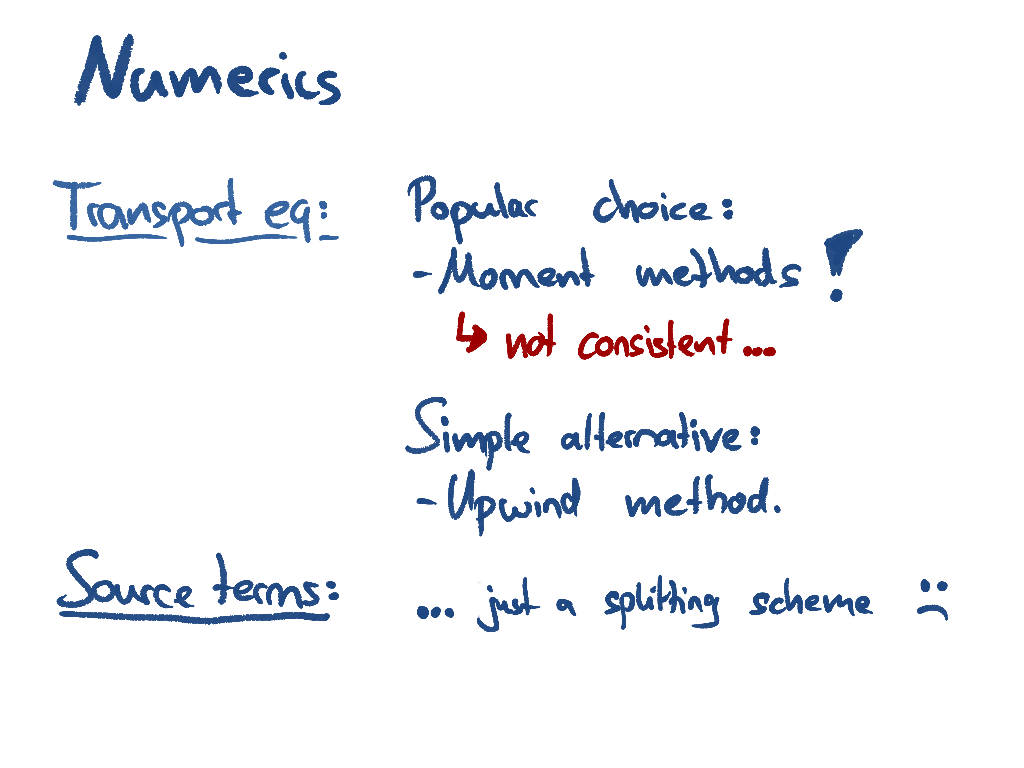 Numerics
Transport eq: Popular choice:
- Moment methods !
↳ not consistent...
Simple alternative:
- Upwind method.
Source terms: ... just a splitting scheme :(